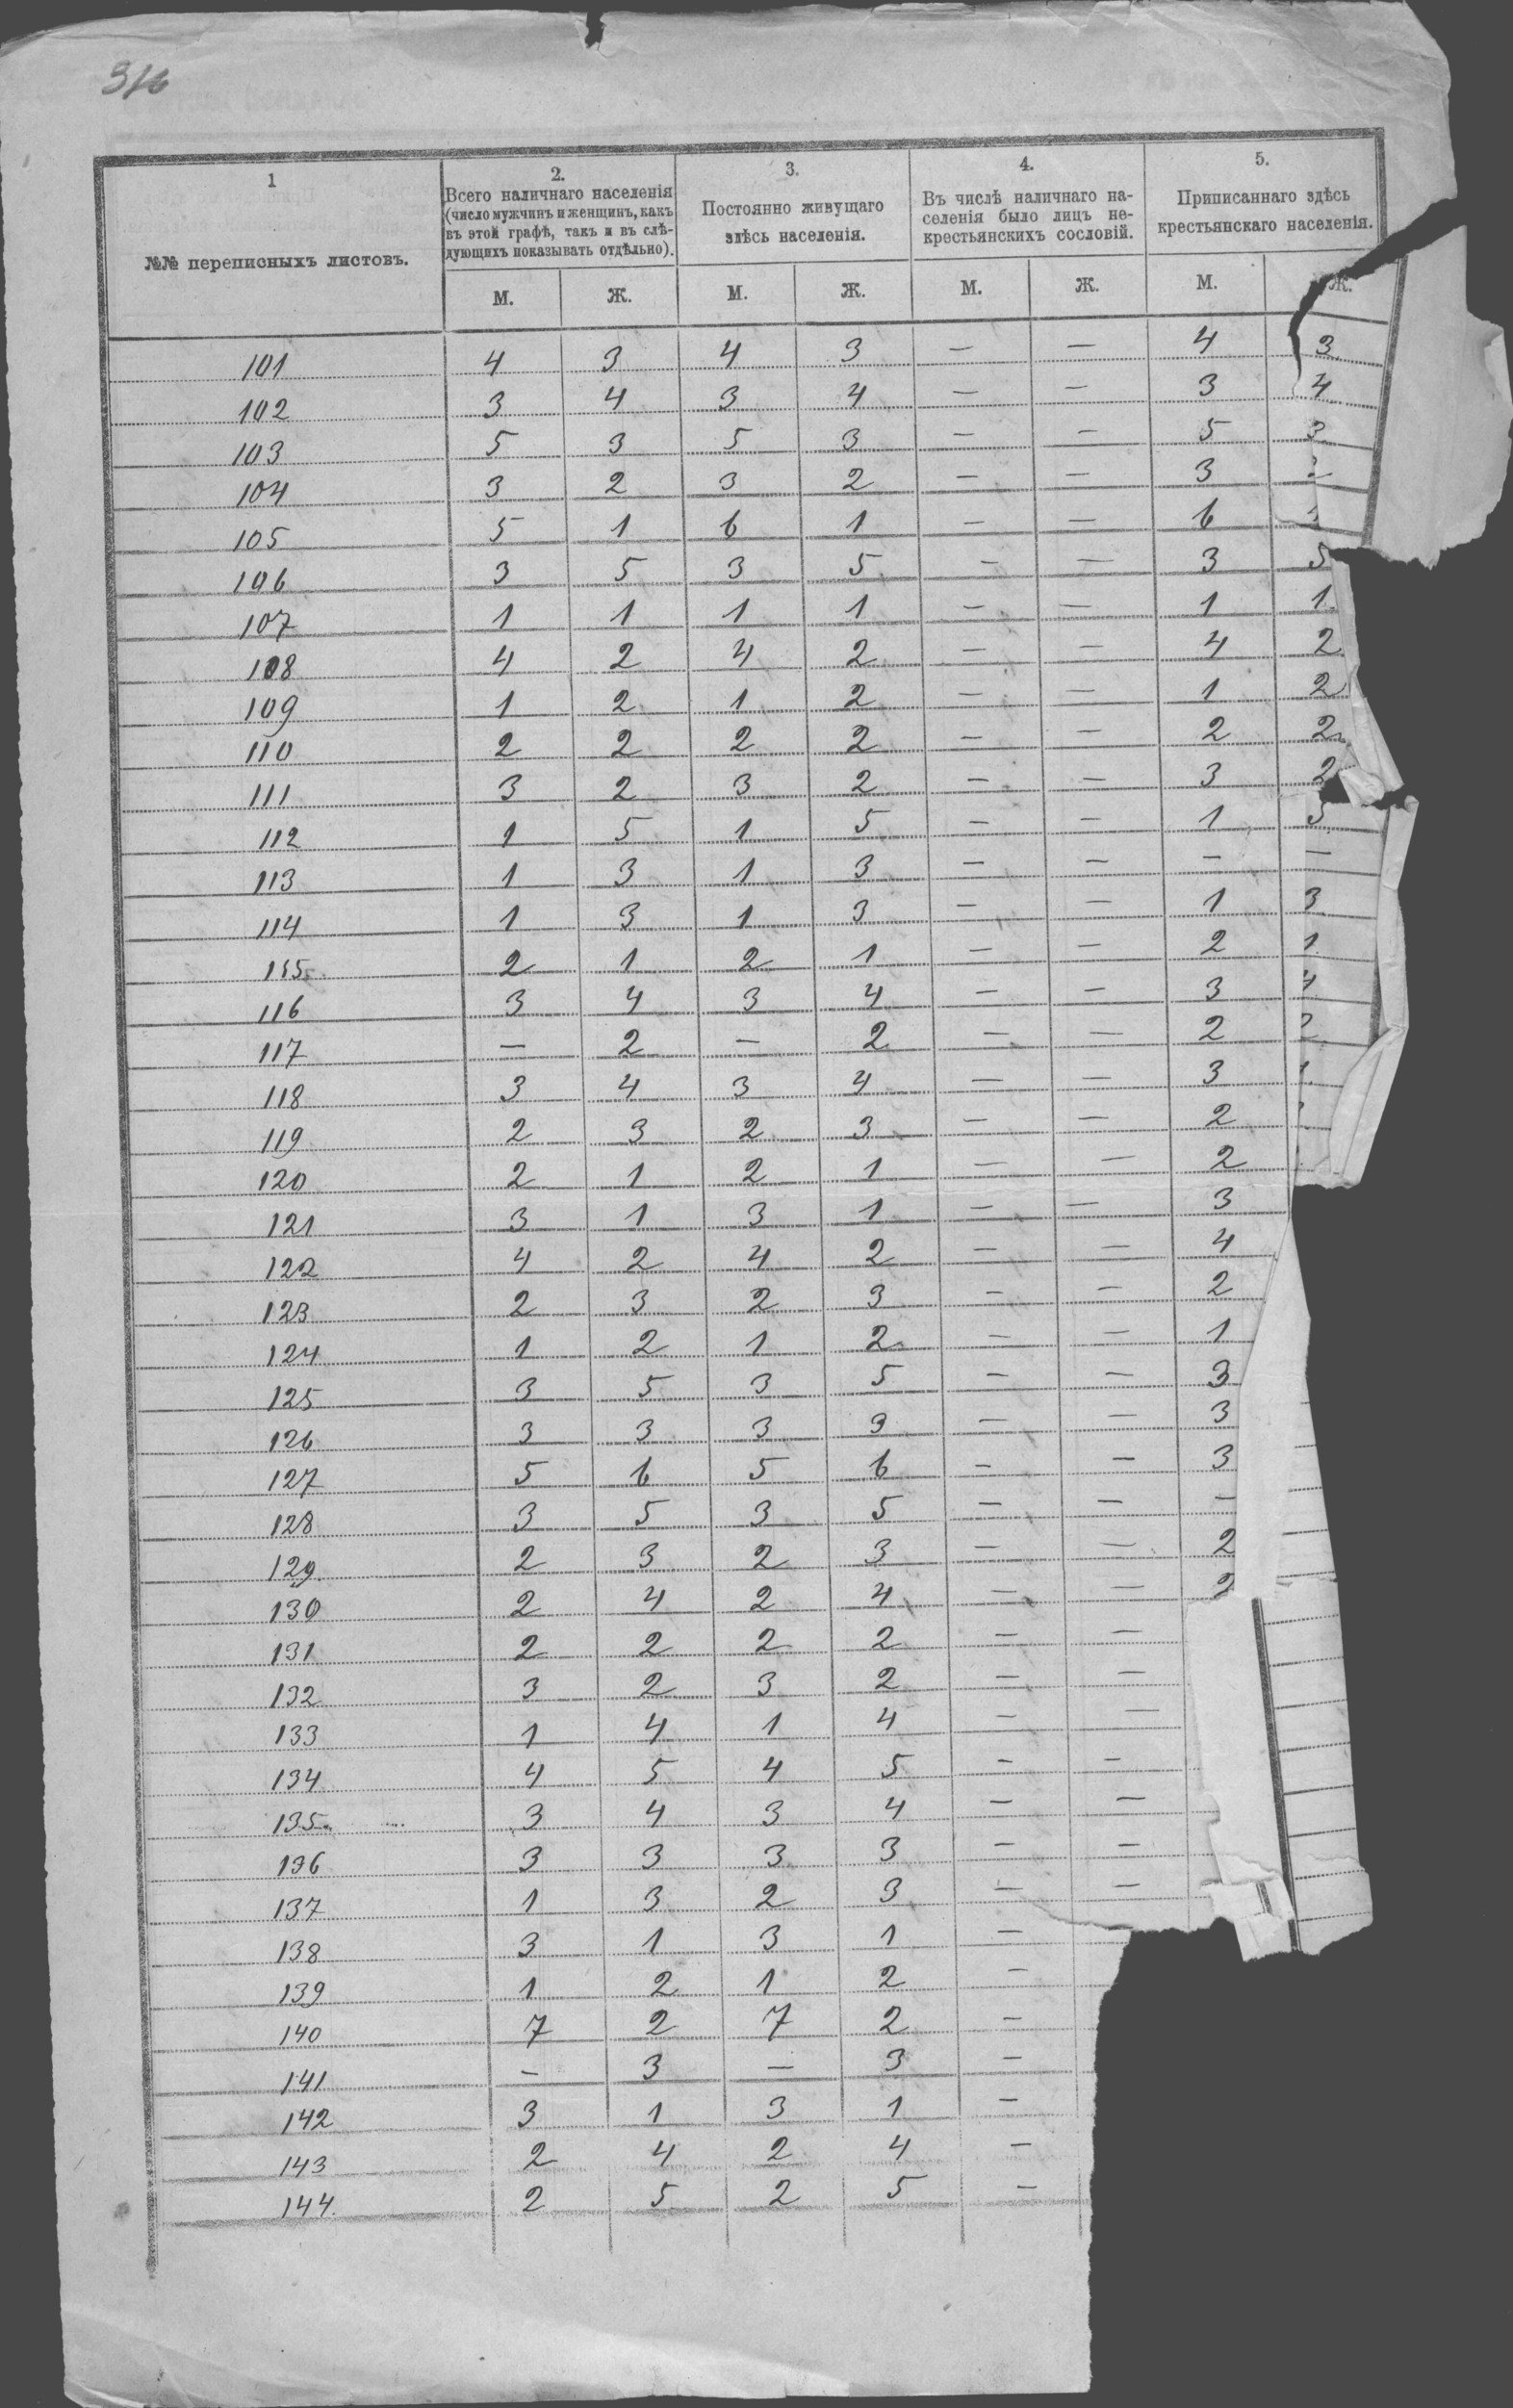 316
1
2.
Всего наличнаго населенія
(число мужчинъ и женщинъ, какъ
въ этой графѣ, такъ и въ слѣ-
дующихъ показывать отдѣльно).
3.
Постоянно живущаго
здѣсь населенія.
4.
Въ числѣ наличнаго на-
селенія было лицъ не-
крестьянскихъ сословій.
5.
Приписаннаго здѣсь
крестьянскаго населенія.
№№ переписныхъ листовъ.
М. Ж. М. Ж. М. Ж. М. Ж.
101 4 3 4 3 — — 4 3
102 3 4 3 4 — — 3 4
103 5 3 5 3 — — 5 3
104 3 2 3 2 — — 3
105 5 1 6 1 — — 6 1
106 3 5 3 5 — — 3 5
107 1 1 1 1 — — 1 1
108 4 2 4 2 — — 4 2
109 1 2 1 2 — — 1 2
110 2 2 2 2 — — 2 2
111 3 2 3 2 — — 3 2
112 1 5 1 5 — — 1 5
113 1 3 1 3 — — — —
114 1 3 1 3 — — 1 3
115 2 1 2 1 — — 2 1
116 3 4 3 4 — — 3 4
117 — 2 — 2 — — 2 2
118 3 4 3 4 — — 3
119 2 3 2 3 — — 2
120 2 1 2 1 — — 2
121 3 1 3 1 — — 3
122 4 2 4 2 — — 4
123 2 3 2 3 — — 2
124 1 2 1 2 — — 1
125 3 5 3 5 — — 3
126 3 3 3 3 — — 3
127 5 6 5 6 — — 3
128 3 5 3 5 — — —
129 2 3 2 3 — — 2
130 2 4 2 4 — — 2
131 2 2 2 2 — —
132 3 2 3 2 — —
133 1 4 1 4 — —
134 4 5 4 5 — —
135 3 4 3 4 — —
136 3 3 3 3 — —
137 1 3 2 3 — —
138 3 1 3 1 —
139 1 2 1 2 —
140 7 2 7 2 —
141 — 3 — 3 —
142 3 1 3 1 —
143 2 4 2 4 —
144 2 5 2 5 —